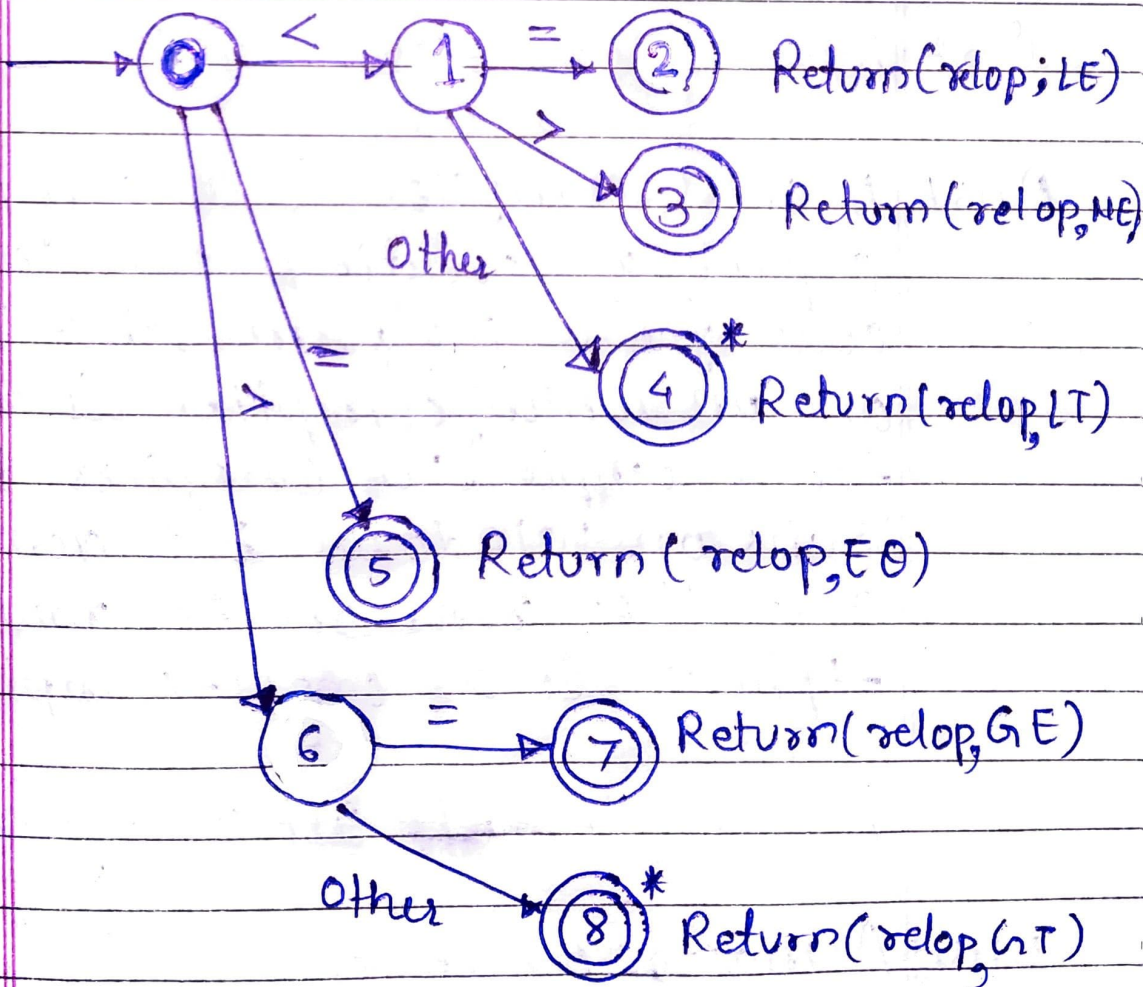 0 < 1 = 2 Return(relop;LE)
> 3 Return(relop,NE)
Other
4 * Return(relop,LT)
=
>
5 Return(relop,EQ)
6 = 7 Return(relop,GE)
Other 8 * Return(relop,GT)